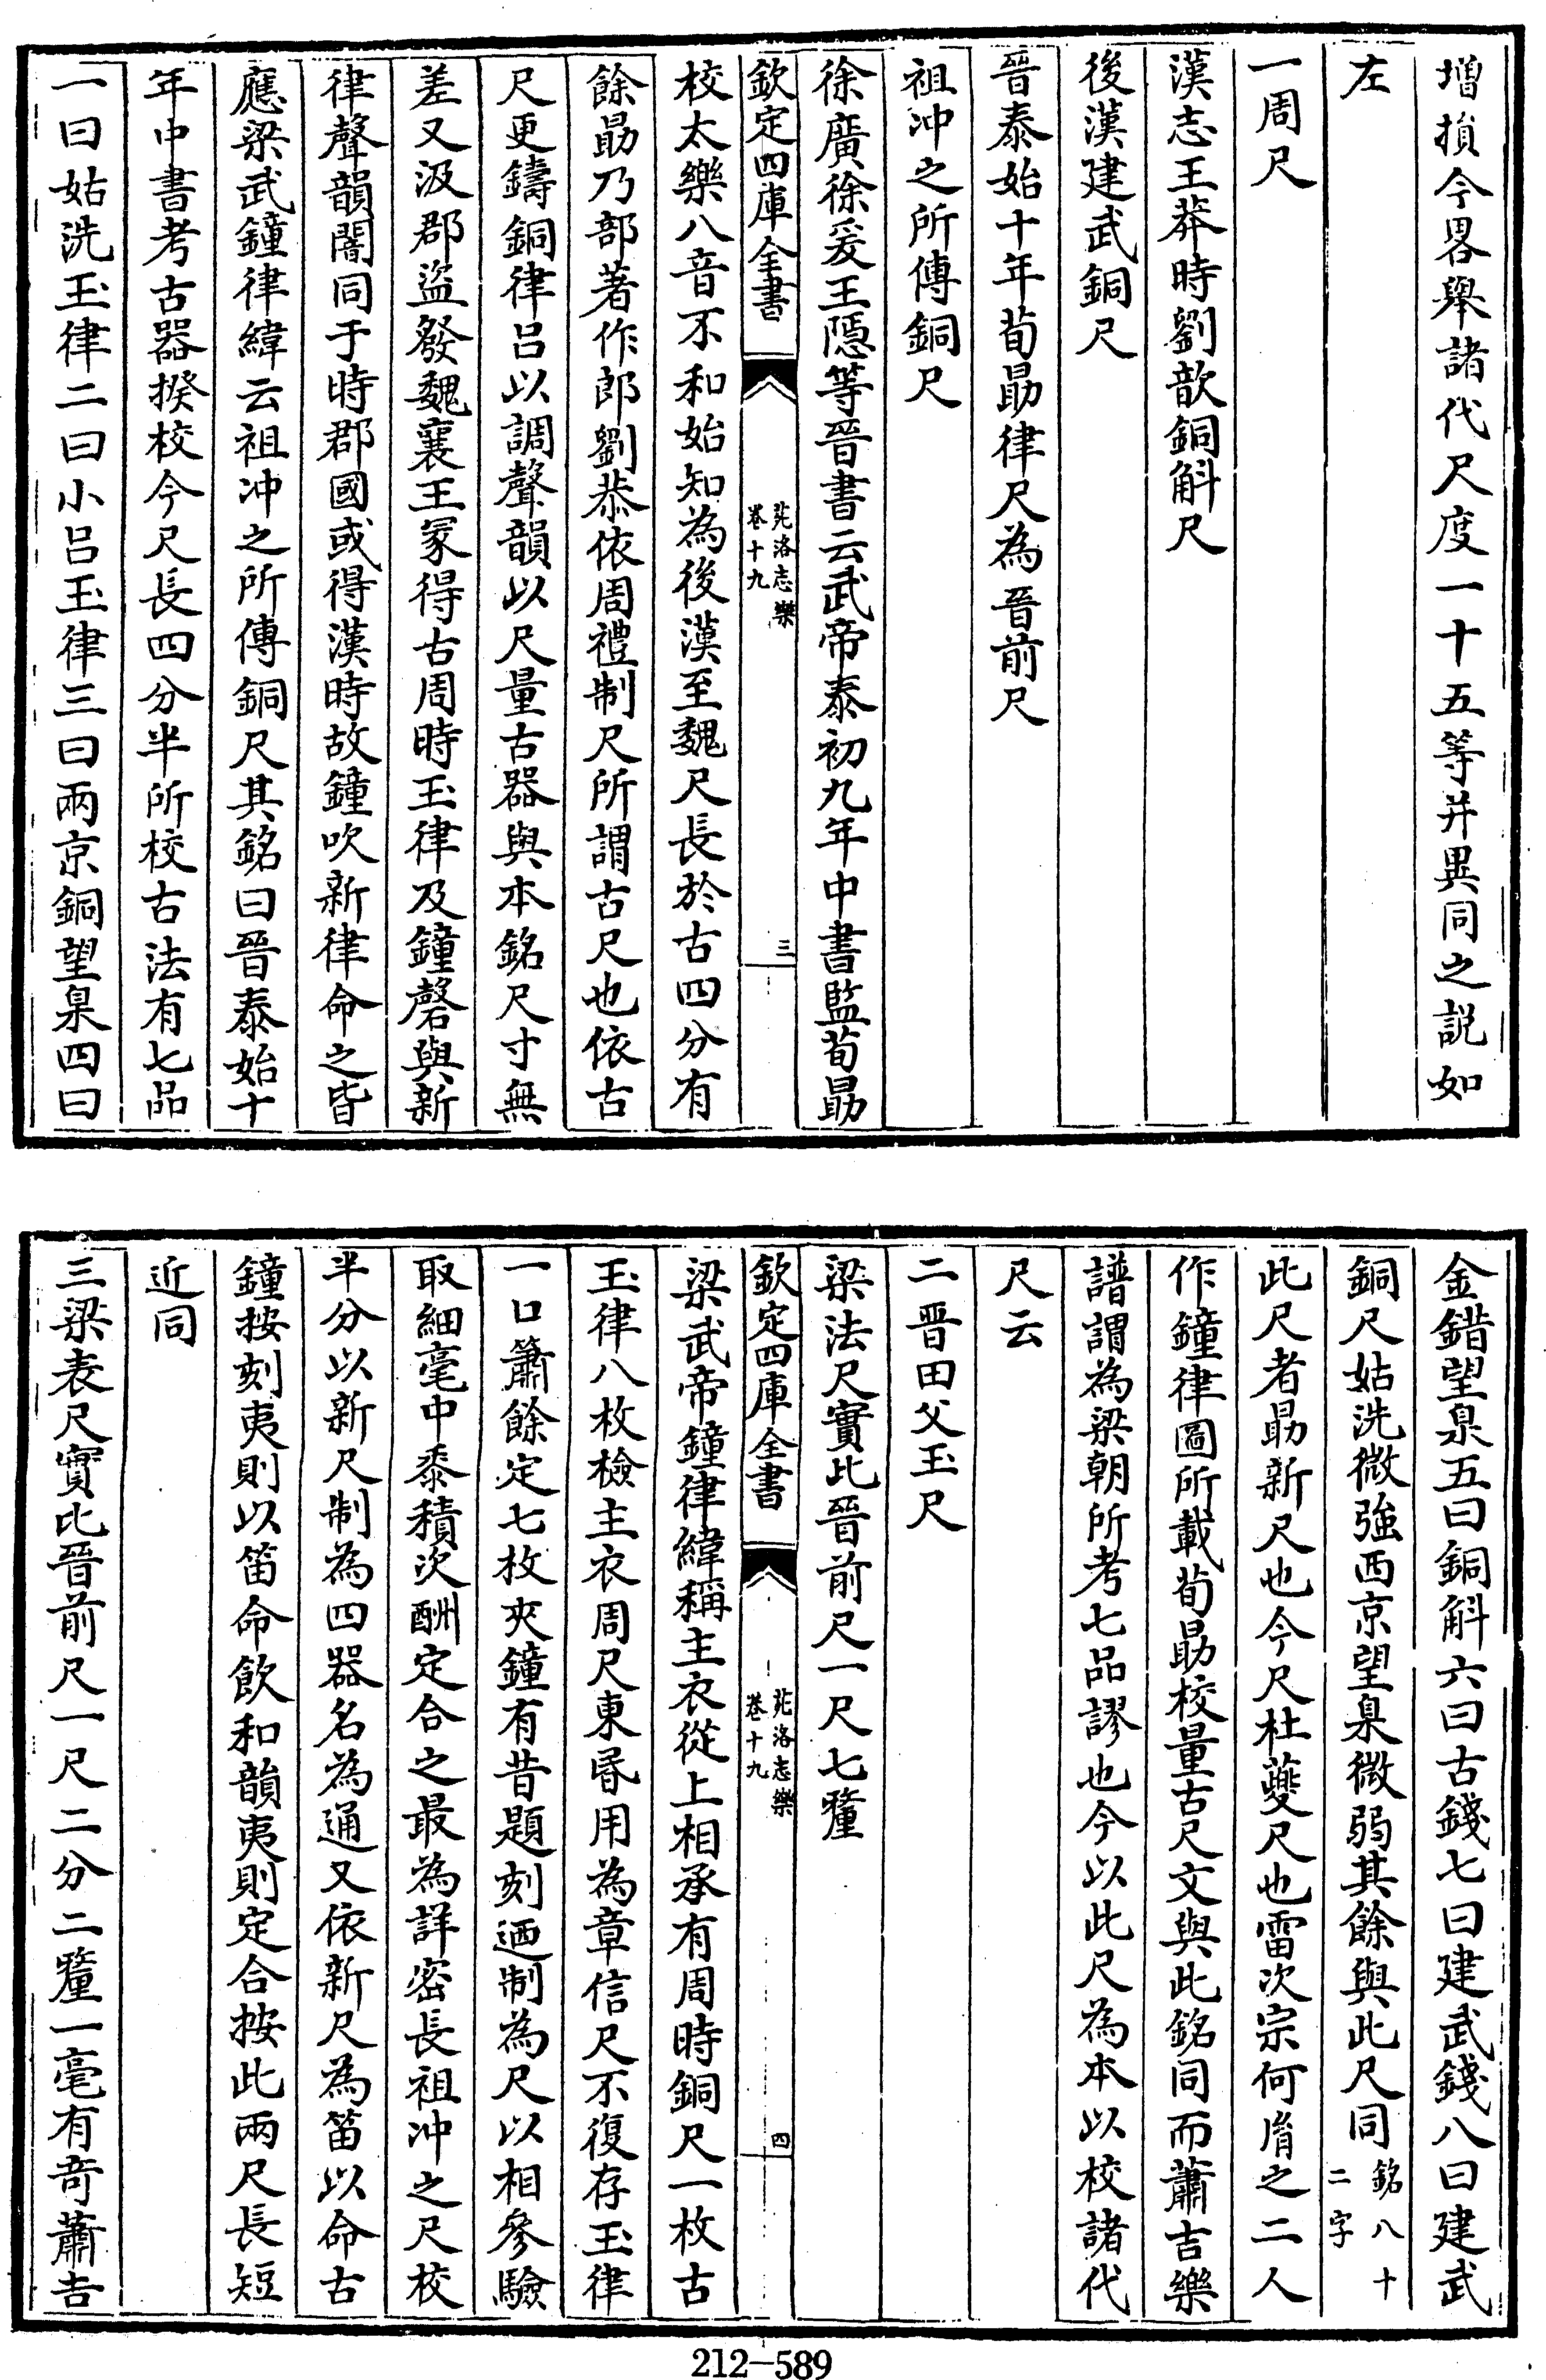 增損今畧舉諸代尺度一十五等并異同之説如
左
一周尺
漢志王莽時劉歆銅斛尺
後漢建武銅尺
晉泰始十年荀勗律尺為晉前尺
祖冲之所傳銅尺
徐廣徐爰王隱等晉書云武帝泰初九年中書監荀勗
欽定四庫全書
苑洛志樂
卷十九
三
校太樂八音不和始知為後漢至魏尺長於古四分有
餘勗乃部著作郎劉恭依周禮制尺所謂古尺也依古
尺更鑄銅律吕以調聲韻以尺量古器與本銘尺寸無
差又汲郡盜發魏襄王冢得古周時玉律及鐘磬與新
律聲韻闇同于時郡國或得漢時故鐘吹新律命之皆
應梁武鐘律緯云祖冲之所傳銅尺其銘曰晉泰始十
年中書考古器揆校今尺長四分半所校古法有七品
一曰姑洗玉律二曰小吕玉律三曰兩京銅望臬四曰
金錯望臬五曰銅斛六曰古錢七曰建武錢八曰建武
銅尺姑洗微強西京望臬微弱其餘與此尺同銘八十二字
此尺者勗新尺也今尺杜夔尺也雷次宗何胤之二人
作鐘律圖所載荀勗校量古尺文與此銘同而蕭吉樂
譜謂為梁朝所考七品謬也今以此尺為本以校諸代
尺云
二晋田父玉尺
梁法尺實比晉前尺一尺七釐
欽定四庫全書
苑洛志樂
卷十九
四
梁武帝鐘律緯稱主衣從上相承有周時銅尺一枚古
玉律八枚檢主衣周尺東昏用為章信尺不復存玉律
一口簫餘定七枚夾鐘有昔題刻迺制為尺以相參驗
取細毫中黍積次酬定合之最為詳密長祖冲之尺校
半分以新尺制為四器名為通又依新尺為笛以命古
鐘按刻夷則以笛命飲和韻夷則定合按此兩尺長短
近同
三梁表尺實比晉前尺一尺二分二釐一毫有竒蕭吉
212-589